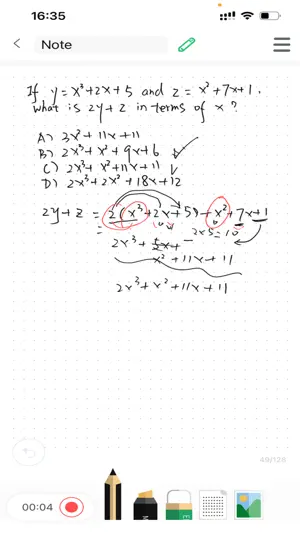 16:35
Note
If y = x³+2x+5 and z = x²+7x+1.
what is 2y+z in terms of x?
A) 3x²+11x+11
B) 2x³+x²+9x+6
C) 2x³+x²+11x+11
D) 2x³+2x²+18x+12
2y+z = 2(x³+2x+5)+x²+7x+1
2x5=10
2x³+
x²+11x+11
2x³+x²+11x+11
49/128
00:04